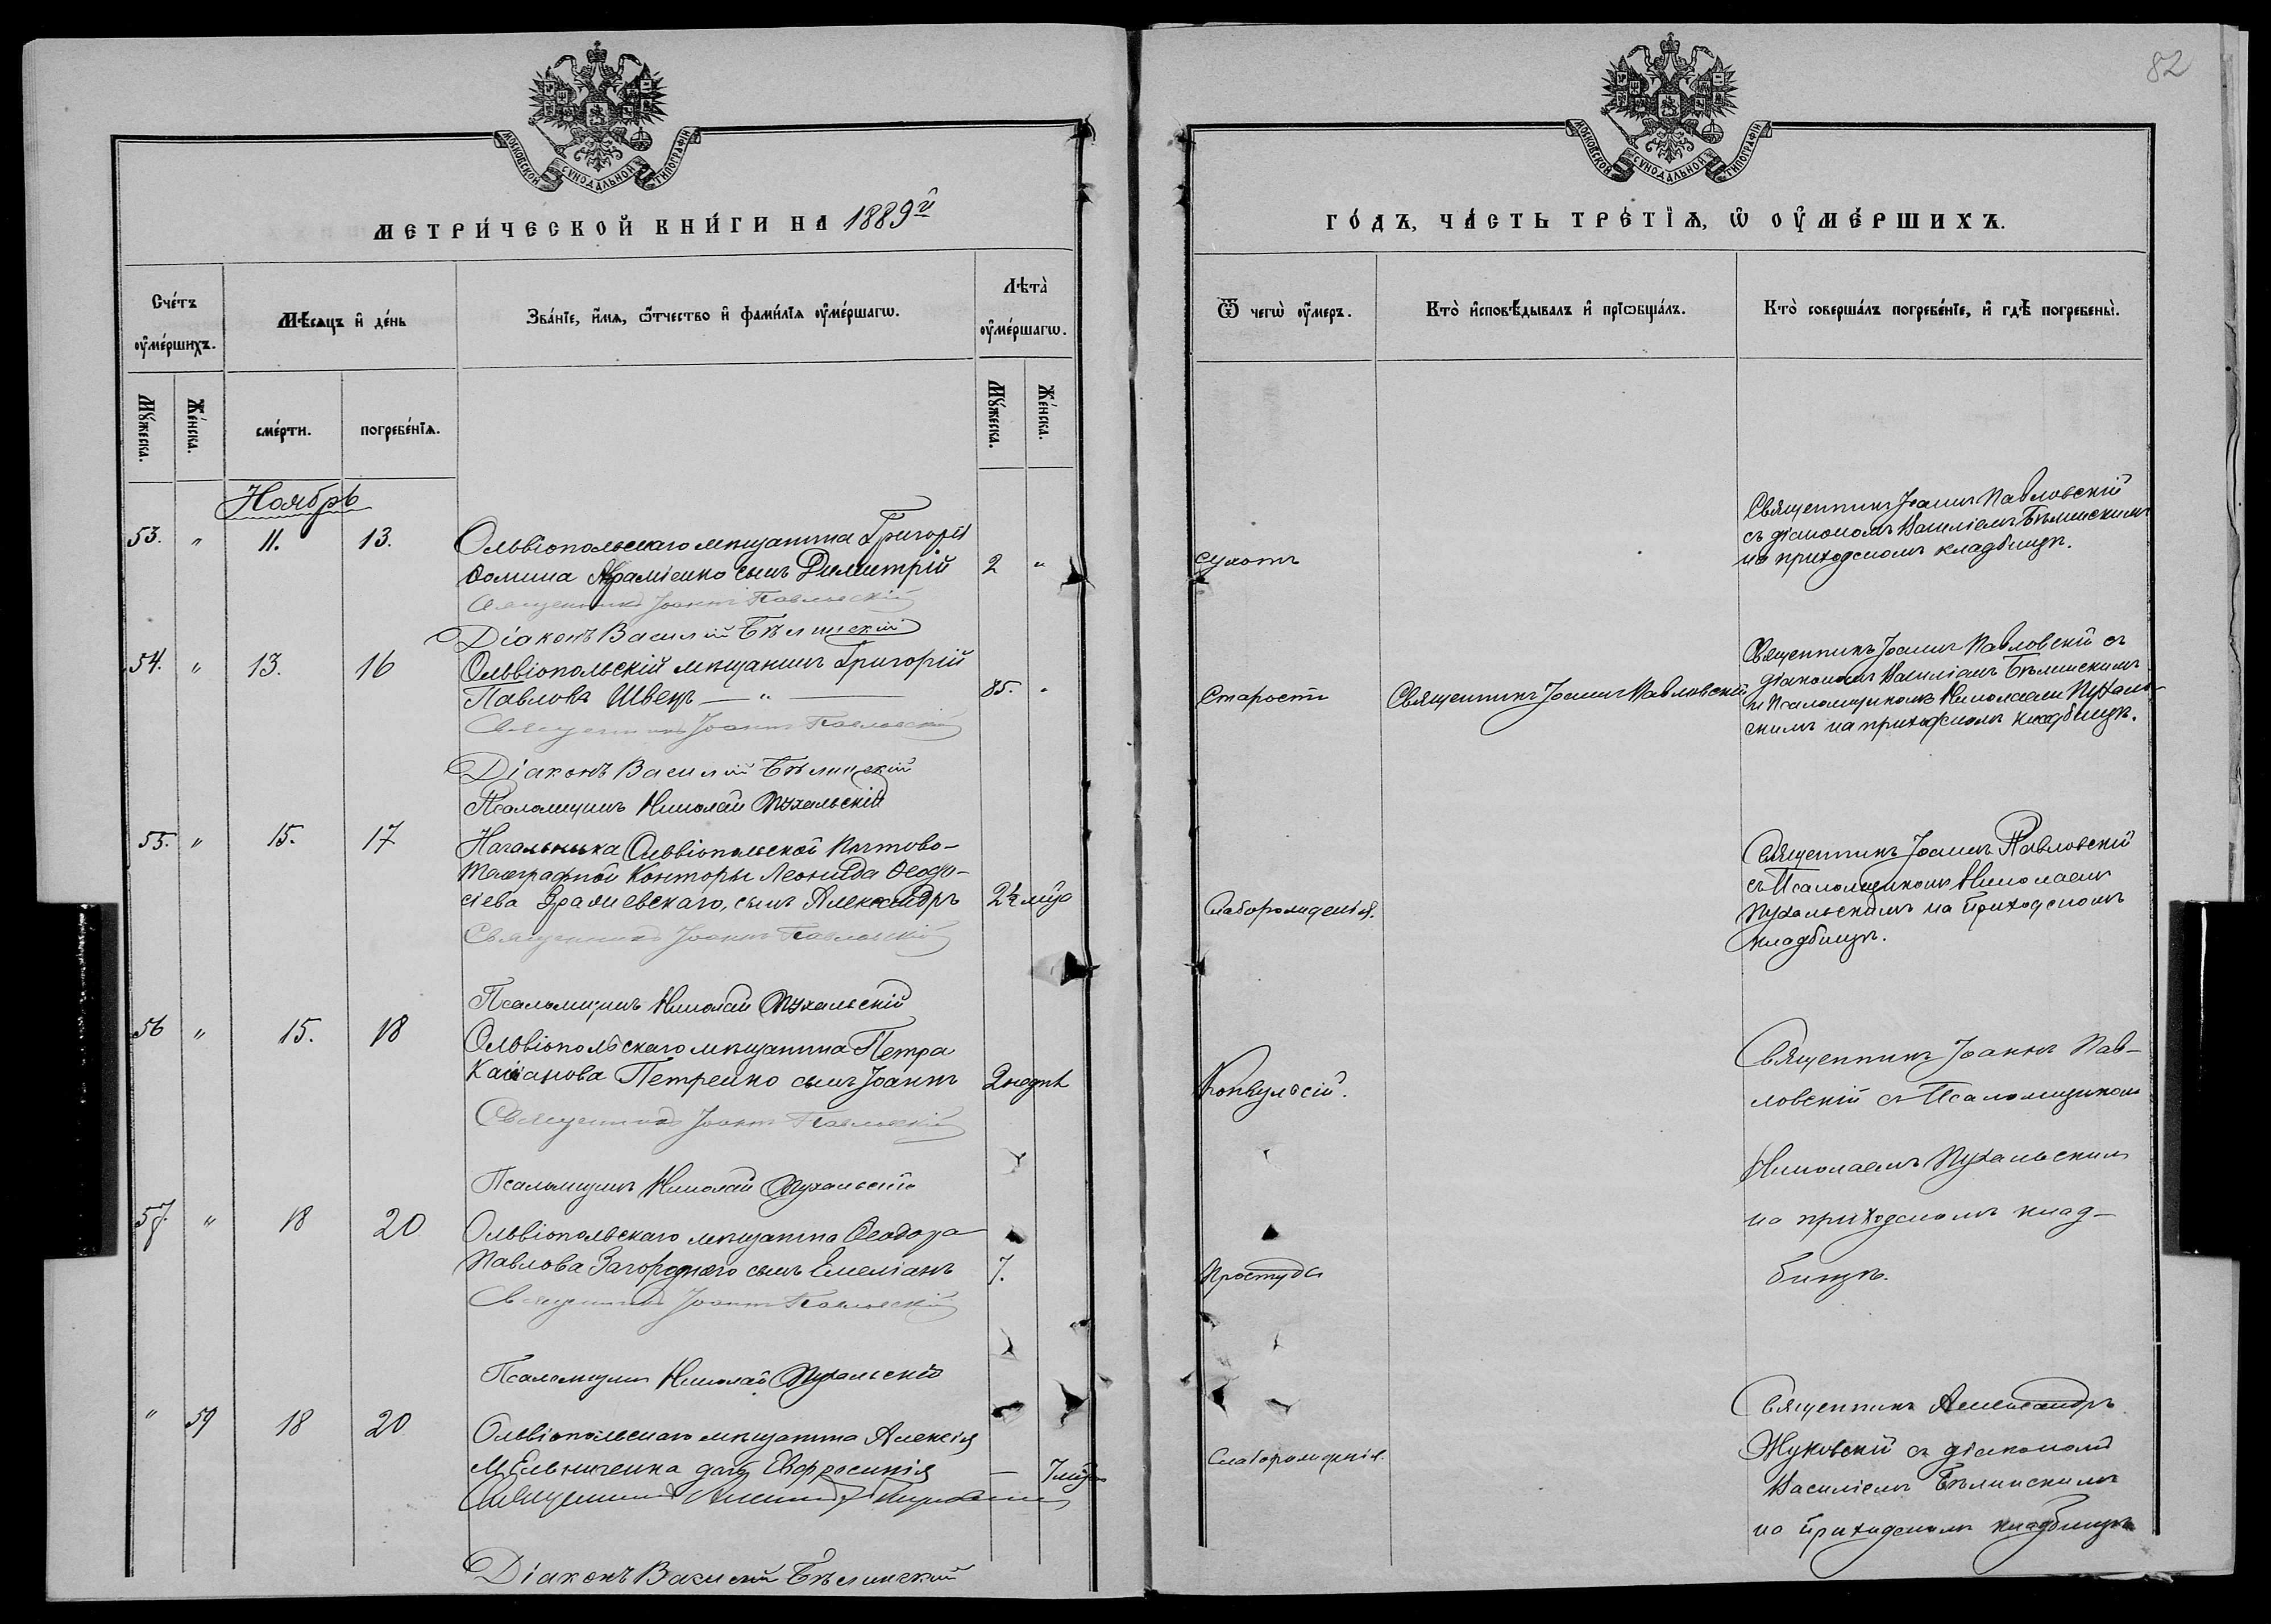 82
МОСКОВСКОЙ СѴНОДАЛЬНОЙ ТИПОГРАФІИ
МЕТРИ́ЧЕСКОЙ КНИ́ГИ НА 1889й
Сче́тъ оу҆ме́ршихъ.
Мѣ́сяцъ и҆ де́нь
Зва́нїе, и҆́мѧ, ѻ҆́тчество и҆ фами́лїѧ оу҆ме́ршагѡ.
Лѣта̀ оу҆ме́ршагѡ.
Мꙋ́жеска.
Же́нска.
сме́рти.
погребе́нїѧ.
Мꙋ́жеска.
Же́нска.
Ноябрь
53. " 11. 13.
Ольвіопольскаго мѣщанина Григорія
сынъ Димитрій 2 "
Священникъ Іоаннъ Павловскій
Діаконъ Василій Бѣлинскій
54. " 13. 16
Ольвіопольскій мѣщанинъ Григорій
Павловъ Швецъ — " — 85. "
Священникъ Іоаннъ Павловскій
Діаконъ Василій Бѣлинскій
Псаломщикъ Николай Пухальскій
55. " 15. 17
Начальника Ольвіопольской Почтово-
Телеграфной Конторы Леонида Ѳеодо-
сіева сынъ Александръ 2½ мца
Священникъ Іоаннъ Павловскій
Псаломщикъ Николай Пухальскій
56 " 15. 18
Ольвіопольскаго мѣщанина Петра
Касіанова Петренко сынъ Іоаннъ 2 недѣл
Священникъ Іоаннъ Павловскій
Псаломщикъ Николай Пухальскій
57. " 18 20
Ольвіопольскаго мѣщанина Ѳеодора
Павлова Загороднаго сынъ Емеліанъ 7.
Священникъ Іоаннъ Павловскій
Псаломщикъ Николай Пухальскій
" 59 18 20
Ольвіопольскаго мѣщанина Алексія
Мельниченка дочь Евфросинія — 7 мца
Священникъ Александръ Жуковскій
Діаконъ Василій Бѣлинскій
МОСКОВСКОЙ СѴНОДАЛЬНОЙ ТИПОГРАФІИ
ГО́ДЪ, ЧА́СТЬ ТРЕ́ТЇѦ, Ѡ҆ ОУ҆МЕ́РШИХЪ.
Ѿ чегѡ̀ оу҆́меръ.
Кто̀ и҆сповѣ́дывалъ и҆ прїѡбща́лъ.
Кто̀ соверша́лъ погребе́нїе, и҆ гдѣ̀ погребены̀.
Сухотъ
Священникъ Іоаннъ Павловскій
съ діакономъ Василіемъ Бѣлинскимъ
на приходскомъ кладбищѣ.
Старости
Священникъ Іоаннъ Павловскій
Священникъ Іоаннъ Павловскій съ
діакономъ Василіемъ Бѣлинскимъ
и Псаломщикомъ Николаемъ Пухаль-
скимъ на приходскомъ кладбищѣ.
Слаборожденія.
Священникъ Іоаннъ Павловскій
съ Псаломщикомъ Николаемъ
Пухальскимъ на приходскомъ
кладбищѣ.
Конвульсій.
Священникъ Іоаннъ Пав-
ловскій съ Псаломщикомъ
Николаемъ Пухальскимъ
на приходскомъ клад-
бищѣ.
Простуды
Слаборожденія.
Священникъ Александръ
Жуковскій съ діакономъ
Василіемъ Бѣлинскимъ
на приходскомъ кладбищѣ